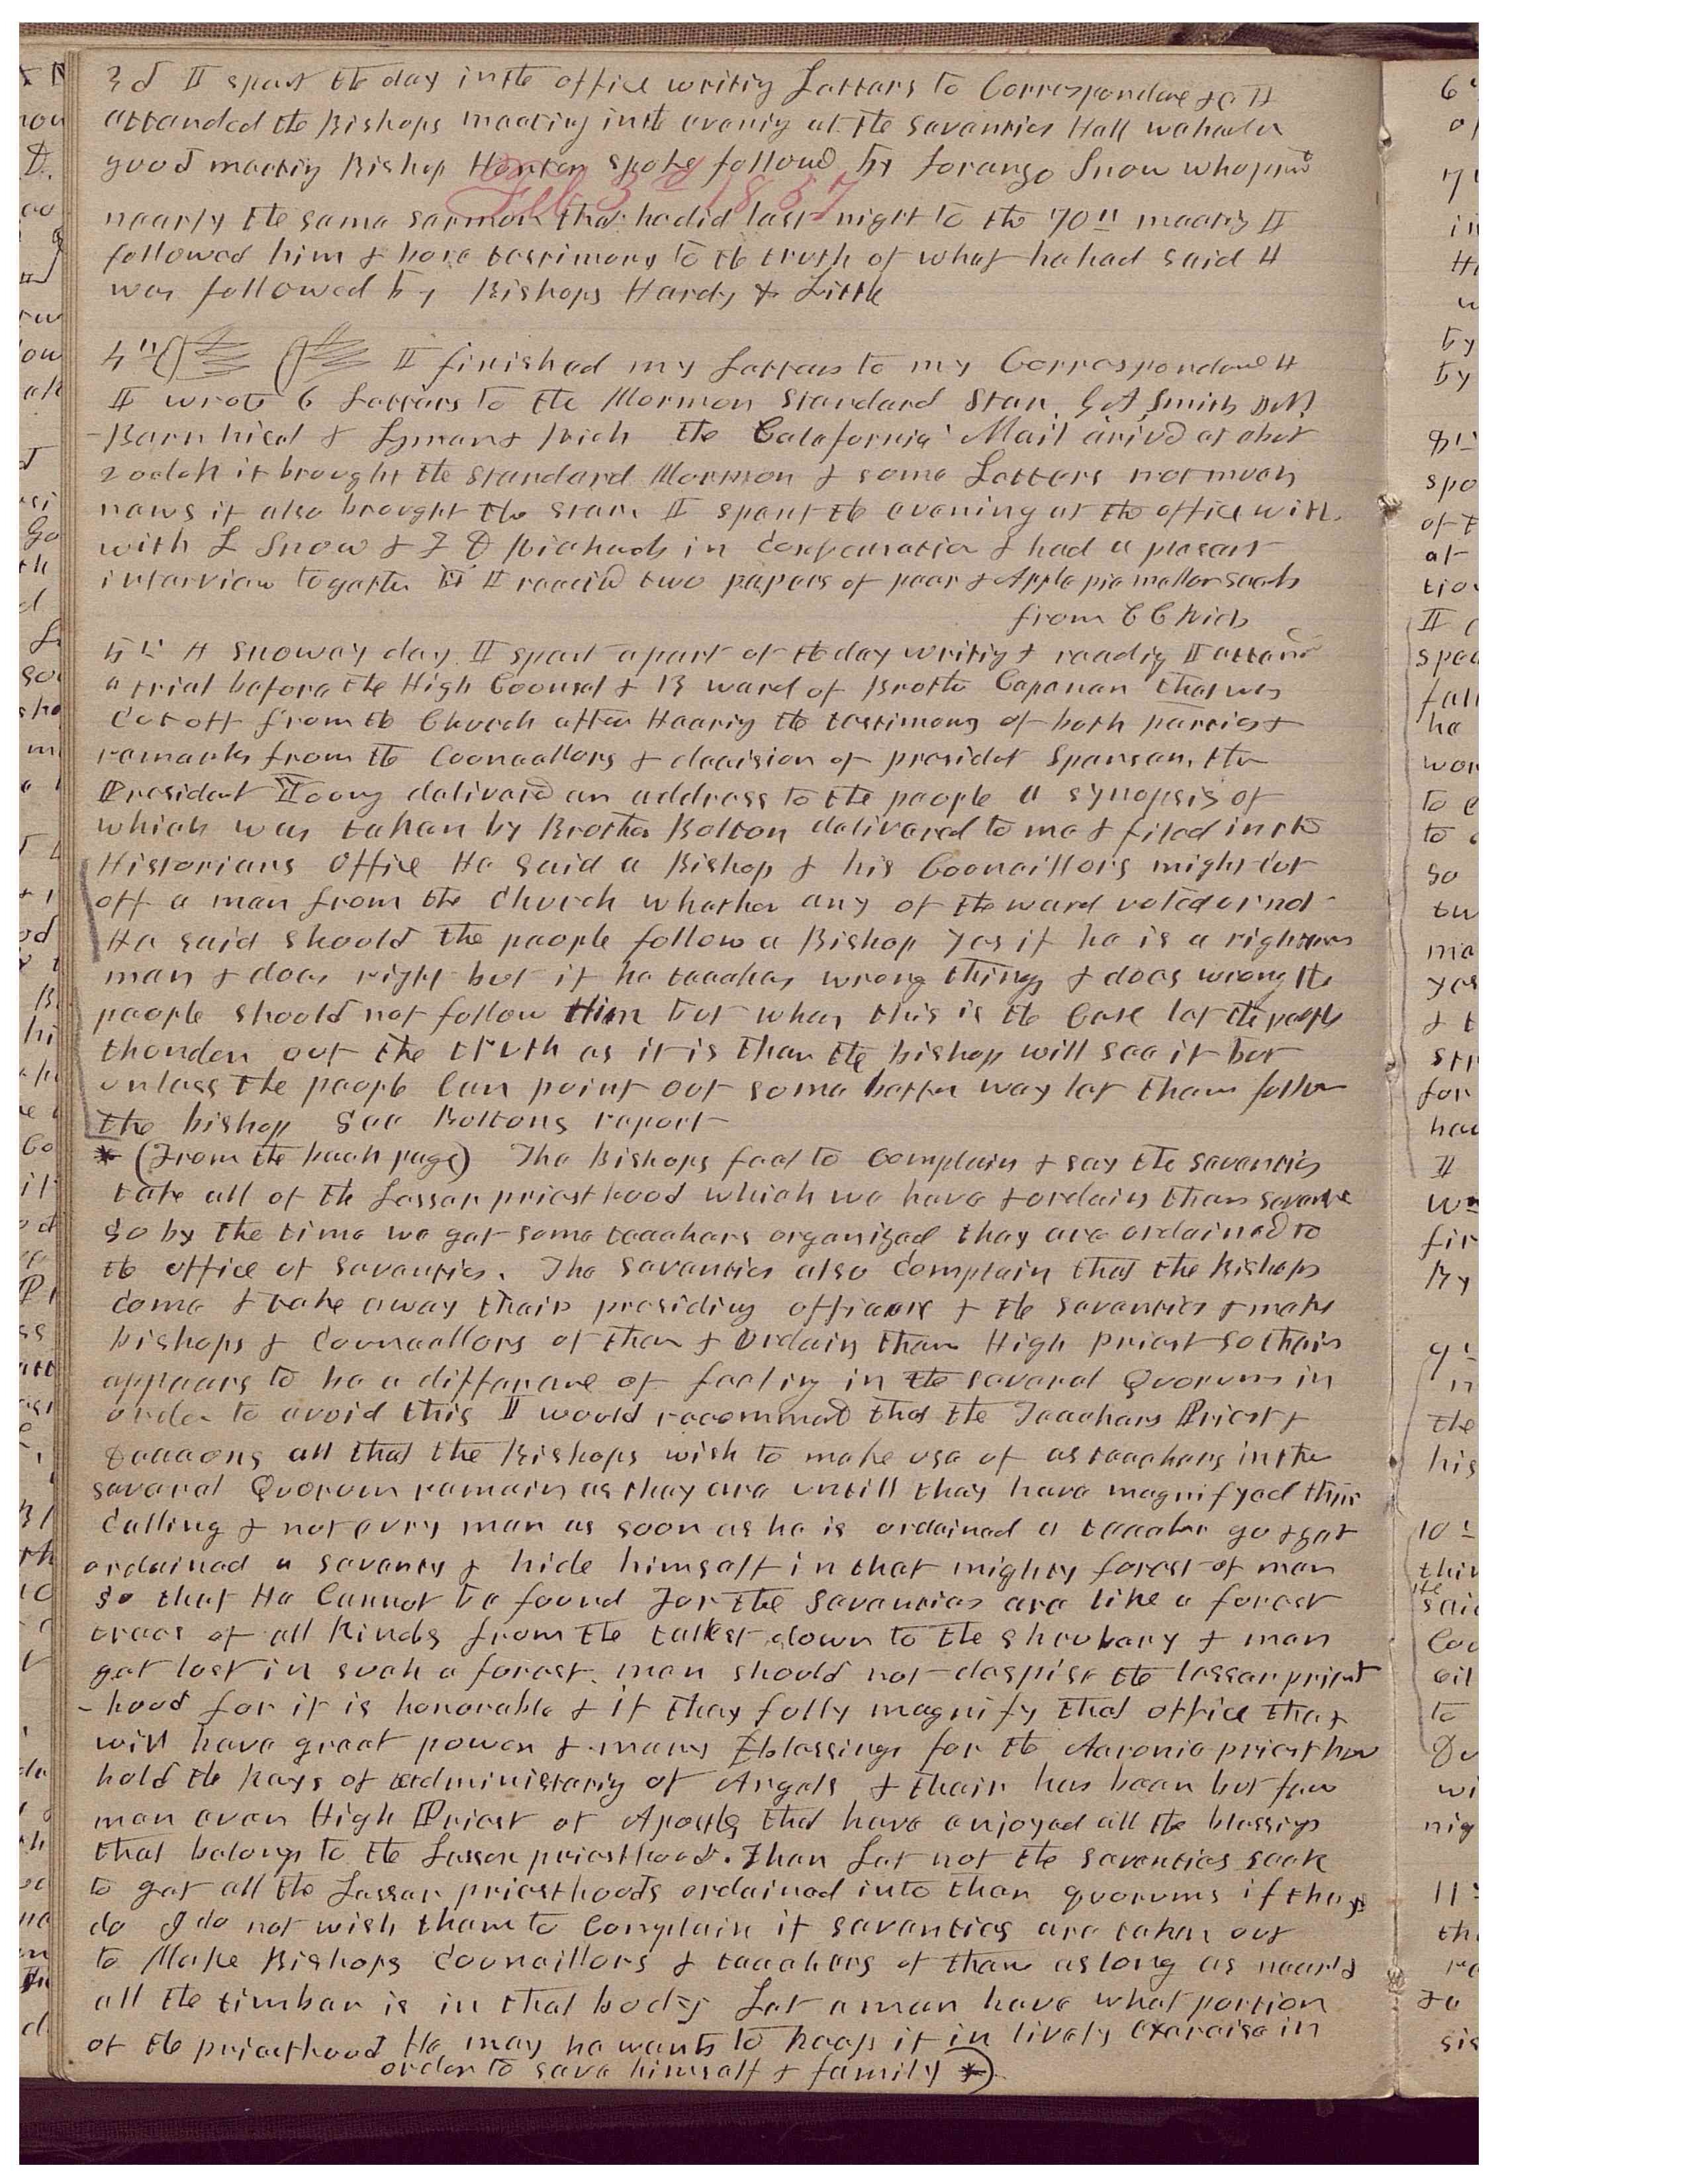 3d I spent the day in the office writing Letters to Correspondence &c I
attended the Bishops meeting in the evening at the Seventies Hall we had a
good meeting Bishop Hunter spoke followed by Lorenzo Snow who preachd
Feb 3d 1857
nearly the same sermon that he did last night to the 70th meeting I
followed him & bore testimony to the truth of what he had said &
was followed by Bishops Hardy & Little
4th I finished my Letters to my Correspondance &
I wrote 6 Letters to the Mormon Standard Star. G A Smith
-Barnhisel & Lyman & Rich the Calafornia Mail arived at about
2 oclok it brought the Standard Mormon & some Letters not much
news it also brought the Star. I spent the evening at the office with
with L Snow & F D Richards in conversation & had a plesant
interview together I receivd two papers of pear & Apple pie mellon seeds
from C C Rich
5th A snowey day. I spent a part of the day writing & reading I attend
a trial before the High Counsel & 13 ward of Brother Capenan that was
cut off from the Church after Hearing the testimony of both parties &
remarks from the Councellors & decision of presidet Spensen, the
President Young deliverd an address to the people a synopsis of
which was taken by Brother Bolton delivered to me & filed in the
Historians Office He said a Bishop & his Councillors might cut
off a man from the Church whether any of the ward voted or not-
He said should the people follow a Bishop yes if he is a righteous
man & does right but if he teaches wrong things & does wrong the
people should not follow Him but when this is the Case let the people
thonder out the truth as it is then the bishop will see it but
unless the people Can point out some better way let them follow
the bishop See Boltons report
* (From the back page) The Bishops feel to Complain & say the seventies
take all of the Lesser priesthood which we have & ordain them seventies
so by the time we get some teachers organized they are ordained to
the office of seventies. The seventies also Complain that the Bishops
come & take away their presiding officers & the seventies & make
bishops & Councellors of them & Ordain them High priest so their
appears to be a differance of feeling in the several Quorums in
order to avoid this I would recommend that the Teachers Priest &
Deacons all that the Bishops wish to make use of as teachers in the
several Quorum remain as they are untill they have magnifyed their
calling & not evry man as soon as he is ordained a teacher go & get
ordained a seventy & hide himself in that mighty forest of men
so that He Cannot be found For the Seventies are like a forest
trees of all Kinds from the tallest down to the shrubery & men
get lost in such a forest. men should not despise the lesser priest
-hood for it is honorable & if they fully magnify that office they
will have great power & many blessings for the Aaronic priesthood
hold the keys of administering of Angels & their has been but few
men even High Priest or Apostles that have enjoyed all the blessings
that belongs to the Lesser priesthood. Then Let not the seventies seek
to get all the Lesser priesthoods ordained into their quorums if they
do I do not wish them to Complain if seventies are taken out
to Make Bishops Councillors & teachers of them as long as nearly
all the timber is in that body Let a man have what portion
of the priesthood He may he wants to keep it in lively exercise in
order to save himself & family *)